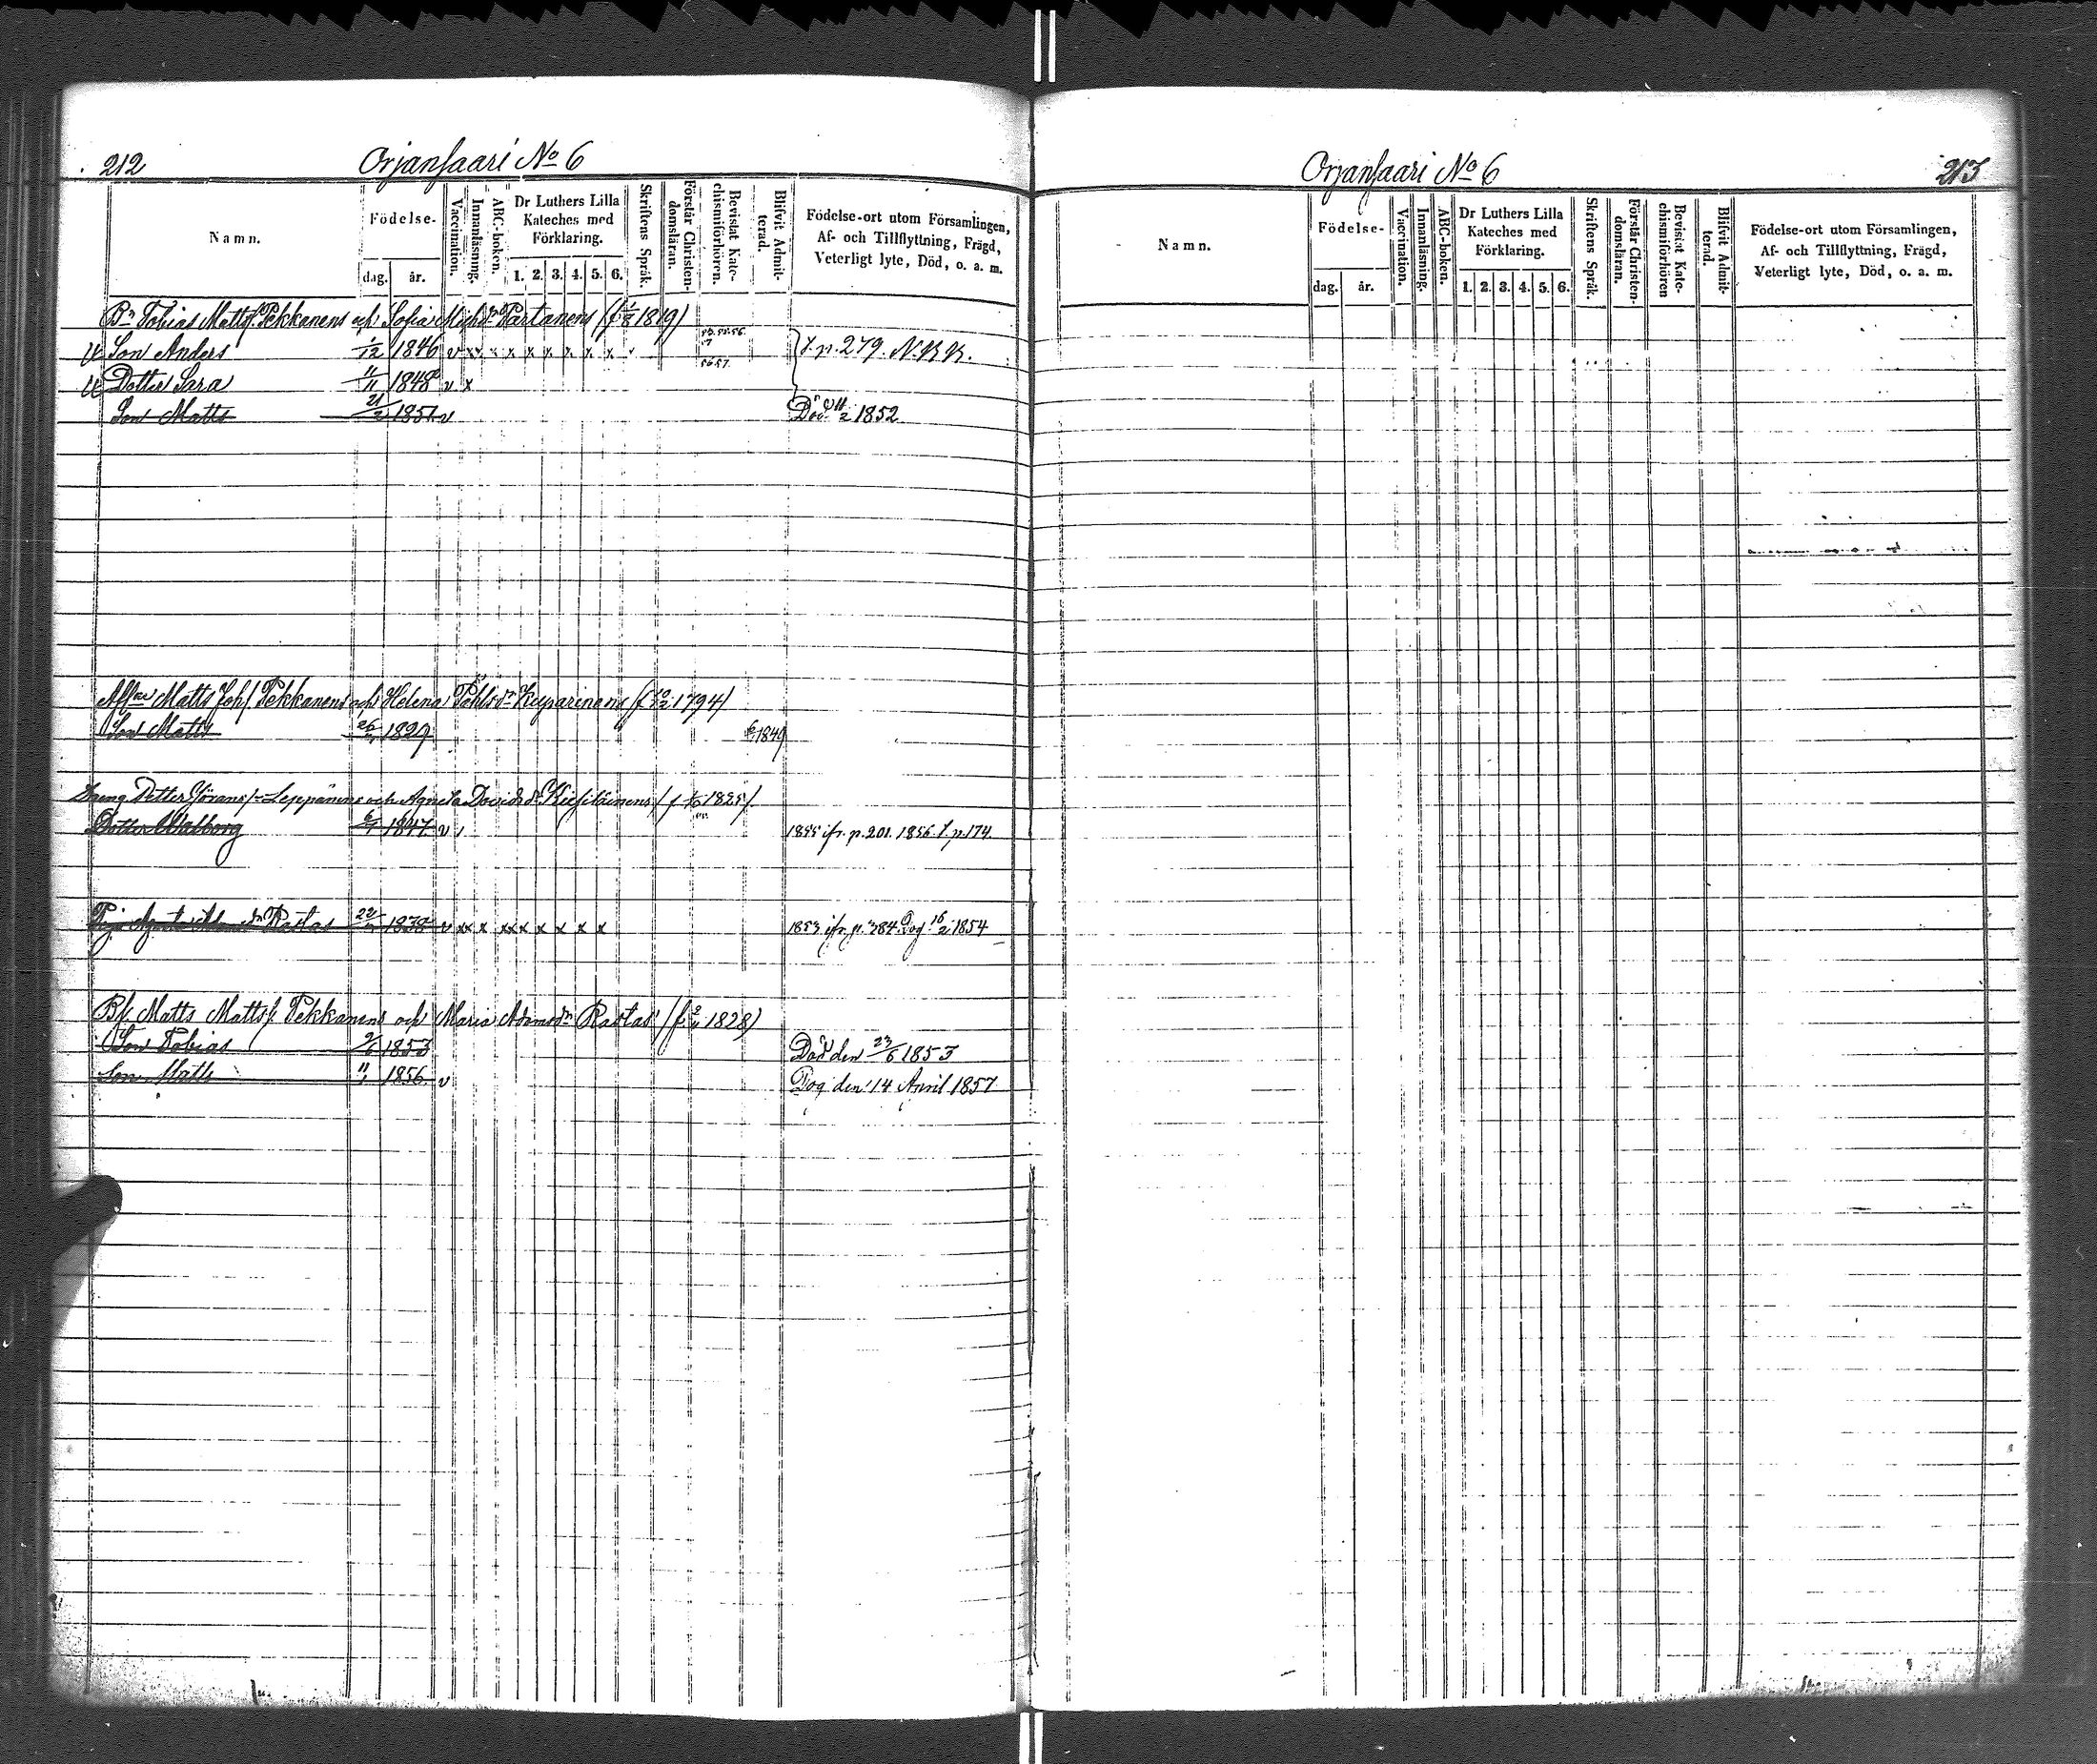 212
Orjansaari No 6
Namn.
Födelse-
dag.
år.
Vaccination.
Innanläsning.
ABC-boken.
Dr Luthers Lilla
Kateches med
Förklaring.
1. 2. 3. 4. 5. 6.
Skriftens Språk.
Förstår Christen-
domsläran.
Bevistat Kate-
chismiförhören.
Blifvit Admit-
terad.
Födelse-ort utom Församlingen,
Af- och Tillflyttning, Frägd,
Veterligt lyte, Död, o. a. m.
Bn Tobias Mattss. Pekkanens och Sofia Michsdr Partanens (f 1/8 1819)
Son Anders 1/12 1846 v xx x x x x x x x t. p. 279. N.B.B.
Dotter Sara 11/11 1848 v x
Son Matts 21/2 1851 v Död 11/2 1852
Matts Johs Pekkanens och Helena Påhlsdr Kuparinens (f 1794)
Son Matts 26 1829 1849
Dotter Görans Leppänens och Agneta Davidsdr 1825)
Dotter Walborg 1847 v 1855 ifr. p. 201. 1856 t. p. 174.
Rastas 22 1838 v xx x xx x x x x x 1853 ifr. p. 384. Dog 16/2 1854
Matts Mattss Pekkanens och Maria Adamsdr Rastas (f 1828)
Son Tobias 1853 Död den 23/6 1853
Son Matts 1856 v Dog den 14 April 1857
Orjansaari No 6
213
Namn.
Födelse-
dag.
år.
Vaccination.
Innanläsning.
ABC-boken.
Dr Luthers Lilla
Kateches med
Förklaring.
1. 2. 3. 4. 5. 6.
Skriftens Språk.
Förstår Christen-
domsläran.
Bevistat Kate-
chismiförhören
Blifvit Admit-
terad.
Födelse-ort utom Församlingen,
Af- och Tillflyttning, Frägd,
Veterligt lyte, Död, o. a. m.